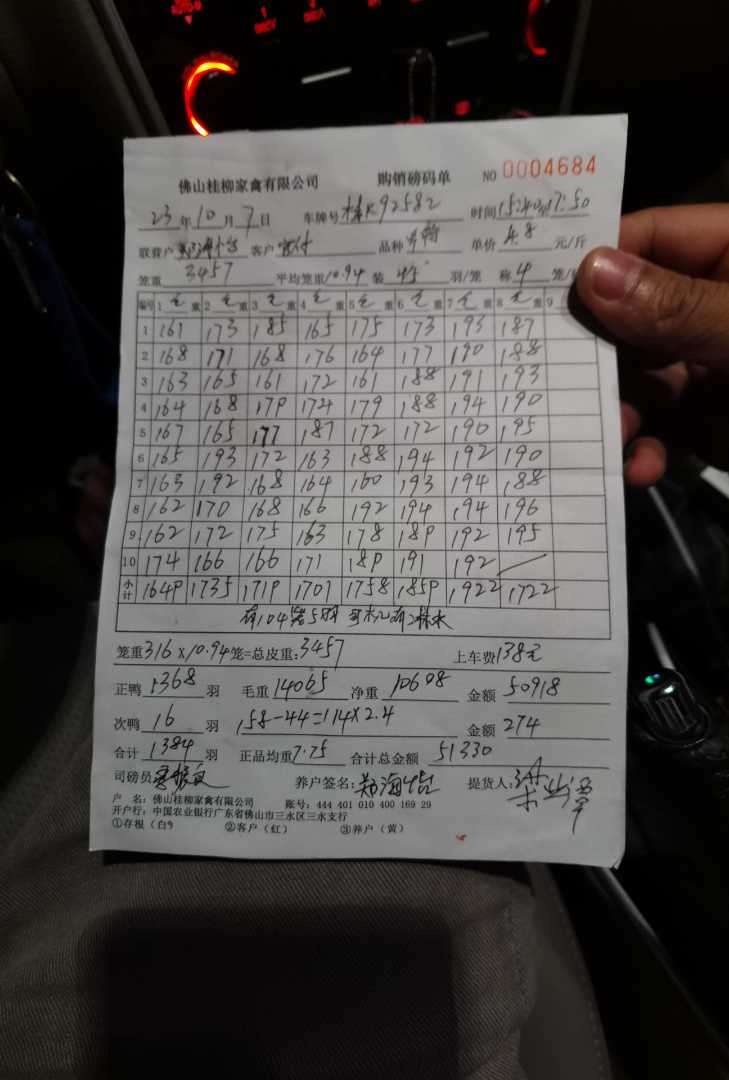 佛山桂柳家禽有限公司 购销磅码单 NO 0004684
23年10月7日 车牌号桂K92582 时间15:40至17:50
联营户 客户 品种 单价 4.8 元/斤
笼重 3457 平均笼重10.94 装 4.5 羽/笼 称 4 笼/
编号 1 毛重 2 毛重 3 毛重 4 毛重 5 毛重 6 毛重 7 毛重 8 毛重 9
1 161 173 185 165 175 173 193 187
2 168 171 168 176 164 177 190 188
3 163 165 161 172 161 188 191 193
4 164 168 179 174 179 188 194 190
5 167 165 177 187 172 172 190 195
6 165 193 172 163 188 194 192 190
7 163 192 168 164 160 193 194 188
8 162 170 168 166 192 194 194 196
9 162 172 175 163 178 189 192 195
10 174 166 166 171 189 191 192
小计 1649 1735 1719 1701 1758 1859 1922 1722
有104笼5羽
笼重316×10.94笼=总皮重:3457 上车费138元
正鸭 1368 羽 毛重 14065 净重 10608 金额 50918
次鸭 16 羽 158-44=114×2.4 金额 274
合计 1384 羽 正品均重7.75 合计总金额 51330
司磅员 养户签名:郑海 提货人:
户 名:佛山桂柳家禽有限公司 账号:444 401 010 400 169 29
开户行:中国农业银行广东省佛山市三水区三水支行
①存根(白) ②客户(红) ③养户(黄)